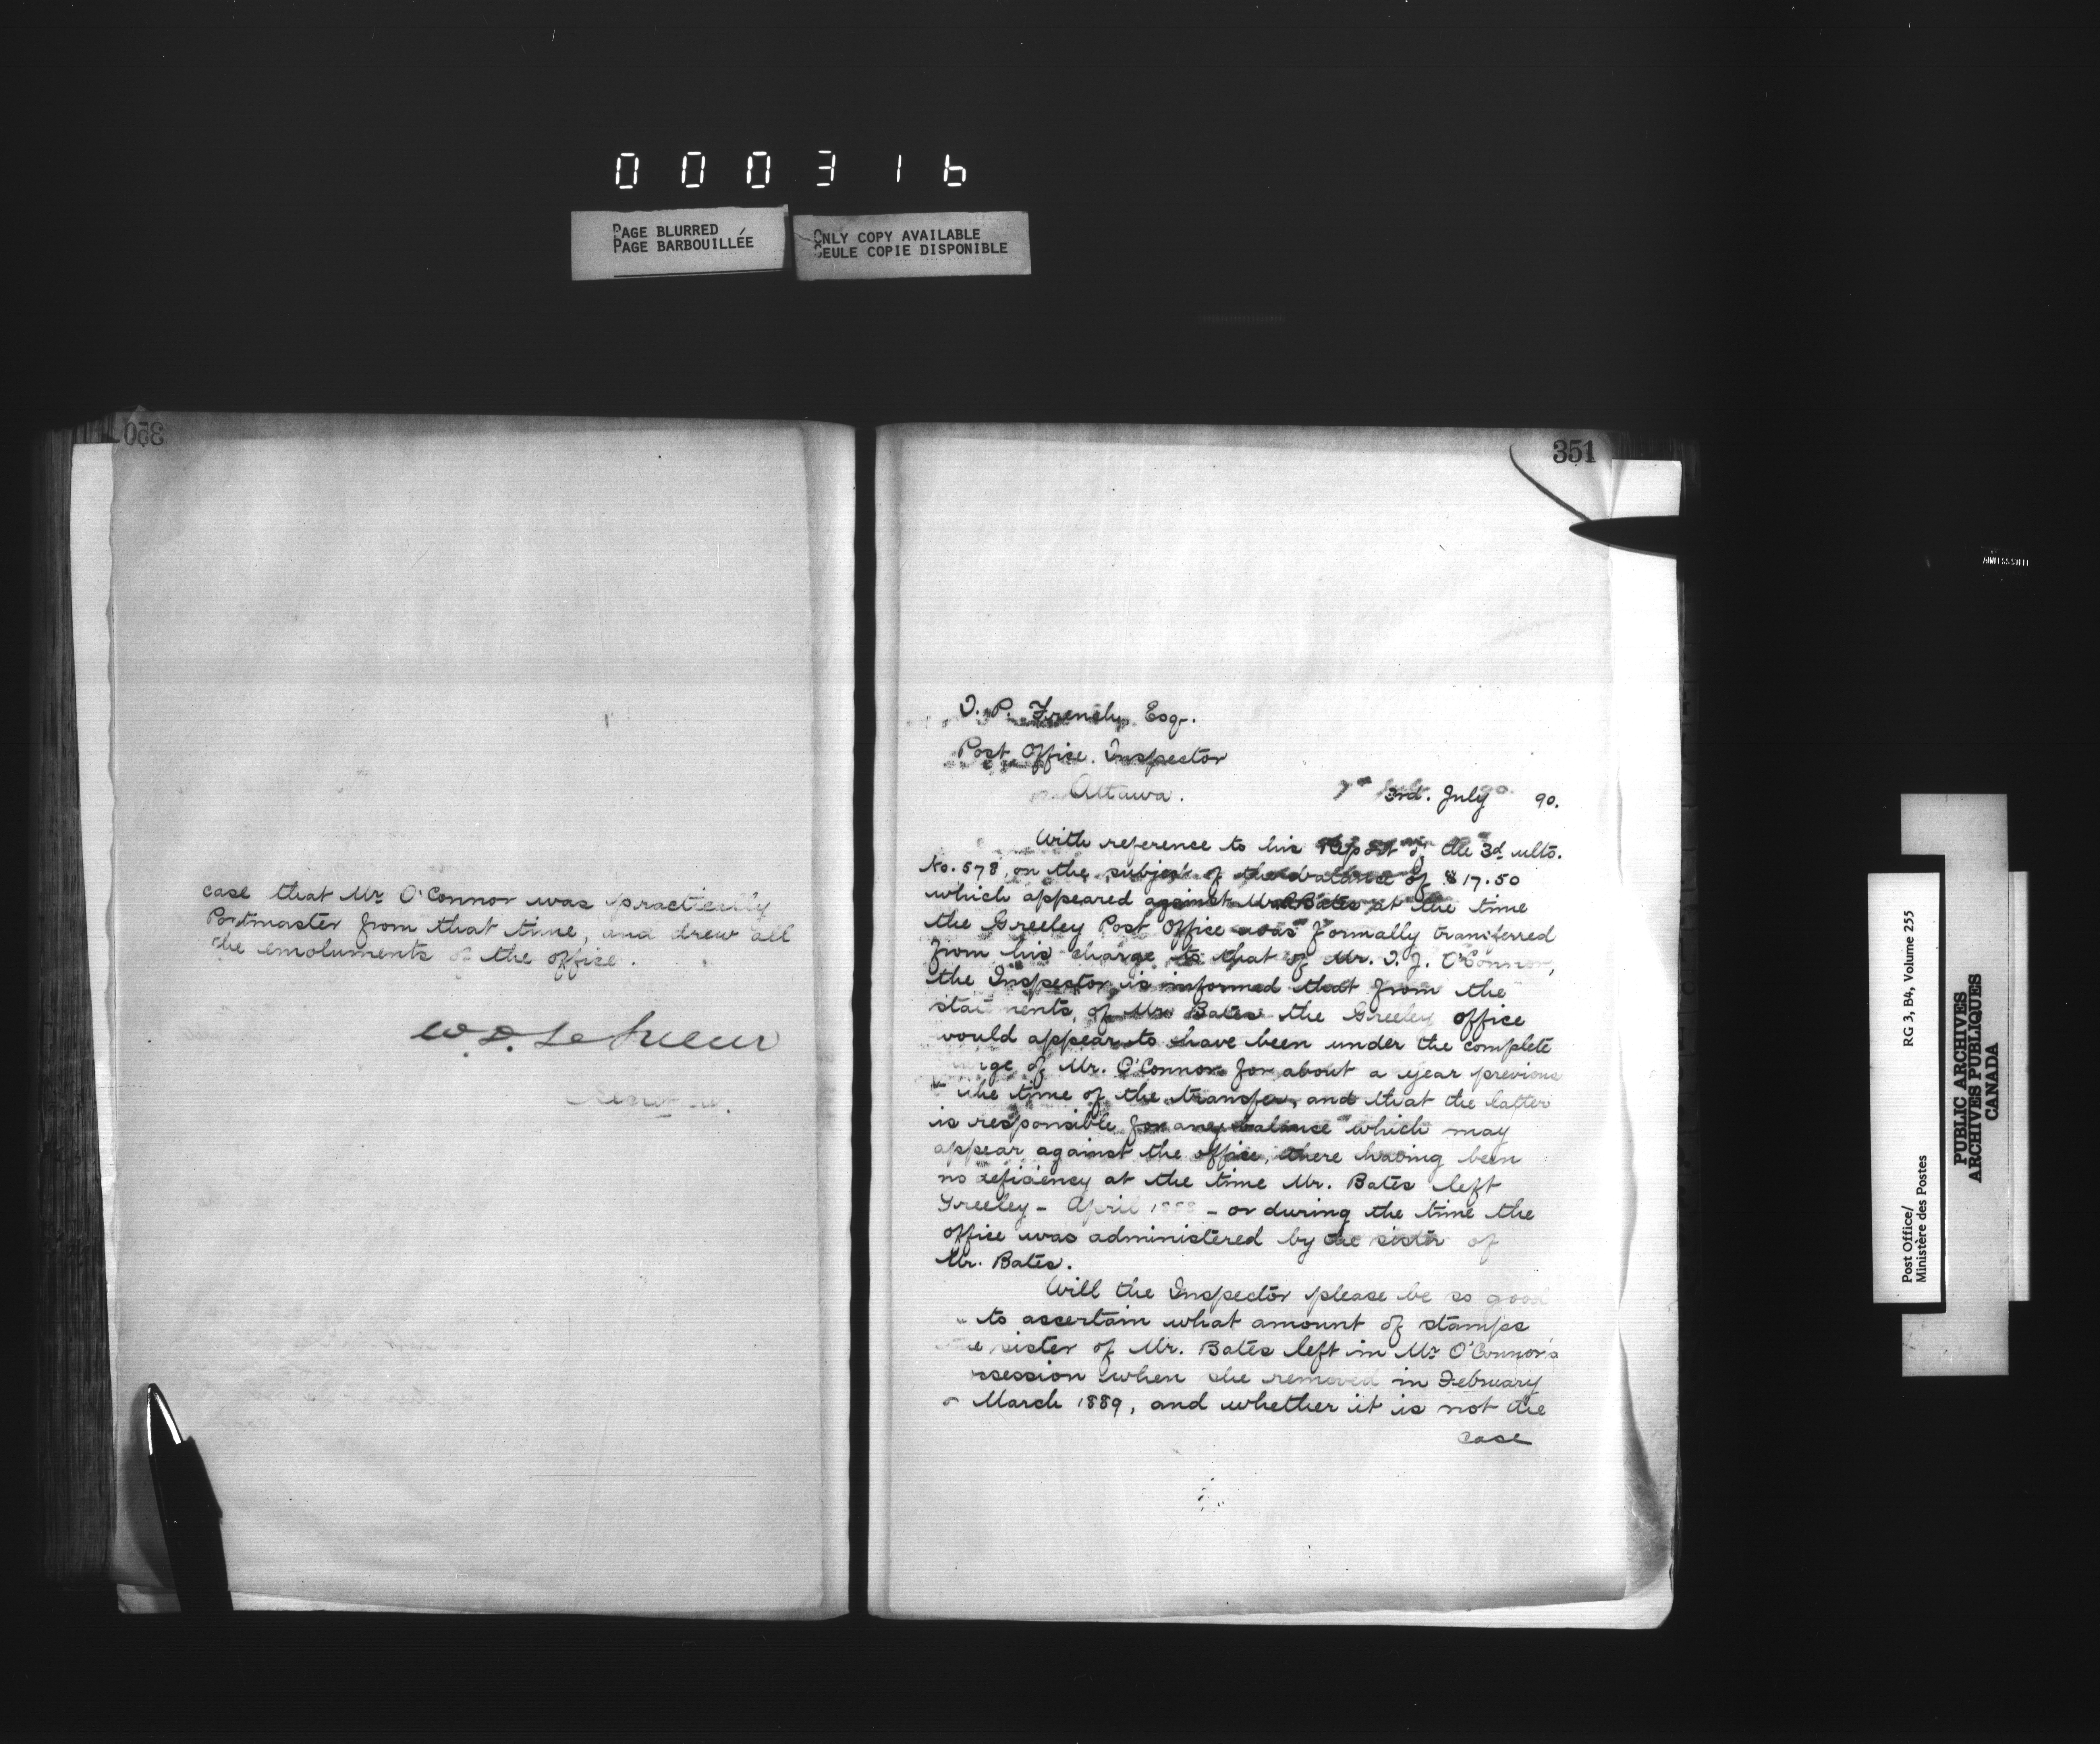 000316
PAGE BLURRED
PAGE BARBOUILLÉE
ONLY COPY AVAILABLE
SEULE COPIE DISPONIBLE
350
case that Mr O'Connor was practically
Postmaster from that time, and drew all
the emoluments of the office.
W. D. LeSueur
Secretary.
351
T. P. French, Esq.
Post Office Inspector
Ottawa.
3rd. July 90.
With reference to his Report of the 3d ulto.
No. 578, on the subject of the balance of $17.50
which appeared against Mr Bates at the time
the Greeley Post Office was formally transferred
from his charge to that of Mr. T. J. O'Connor,
the Inspector is informed that from the
statements of Mr Bates the Greeley office
would appear to have been under the complete
charge of Mr. O'Connor for about a year previous
the time of the transfer, and that the latter
is responsible for any balance which may
appear against the office, there having been
no deficiency at the time Mr. Bates left
Greeley - April 1888 - or during the time the
office was administered by the sister of
Mr. Bates.
Will the Inspector please be so good
to ascertain what amount of stamps
the sister of Mr. Bates left in Mr O'Connor's
possession when she removed in February
or March 1889, and whether it is not the
case
Post Office/
Ministère des Postes
RG 3, B4, Volume 255
PUBLIC ARCHIVES
ARCHIVES PUBLIQUES
CANADA